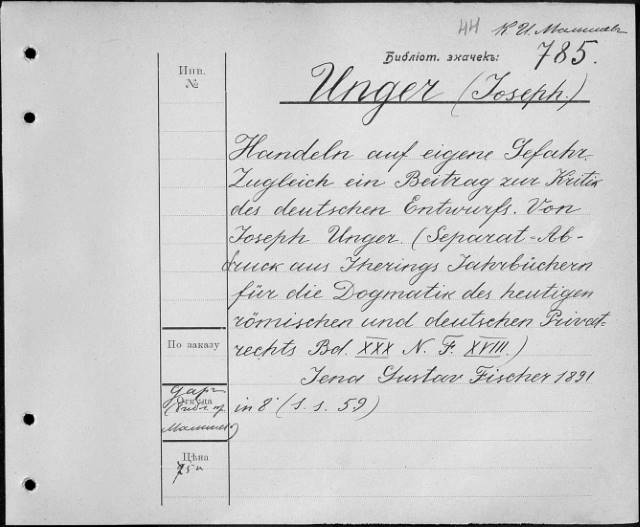 44 К. И. Малышевъ
Библіот. значекъ: 785.
Инв.
№
Unger (Joseph)
Handeln auf eigene Gefahr.
Zugleich ein Beitrag zur Kritik
des deutschen Entwurfs. Von
Joseph Unger. (Separat-Ab-
druck aus Iherings Jahrbüchern
für die Dogmatik des heutigen
römischen und deutschen Privat-
rechts Bd. XXX N. F. XVIII.)
Jena Gustav Fischer 1891
in 8° (1. s. 59)
По заказу
Даръ
Откуда
Цѣна